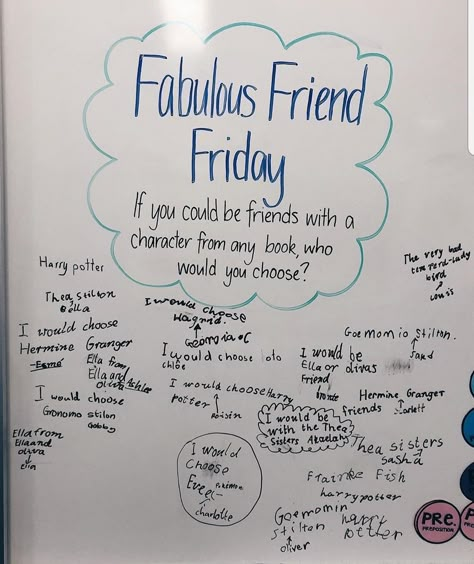 Fabulous Friend
Friday
If you could be friends with a
character from any book, who
would you choose?
Harry potter
The very bad
tempered-lady
bird
Louis
Thea stilton
Ella
I would choose
Hagrid.
Georgia oC
I would choose
Hermine Granger
Esmé
Ella from
Ella and
oliva
Goemomio Stilton.
I would choose
chloe
I would be
Ella or olivas
Friend
I would choose Harry
Potter
Roisin
Hermine Granger
friends
Scarlett
I would choose
Gronomo stilon
Gabby
I would be
with the Thea
Sisters
Ella from
Ella and
oliva
Ella
I would
choose
charlotte
Thea sisters
sasha
Fish
harry potter
Goemomin
Stilton
oliver
harry
Potter
PRE.
PREPOSITION